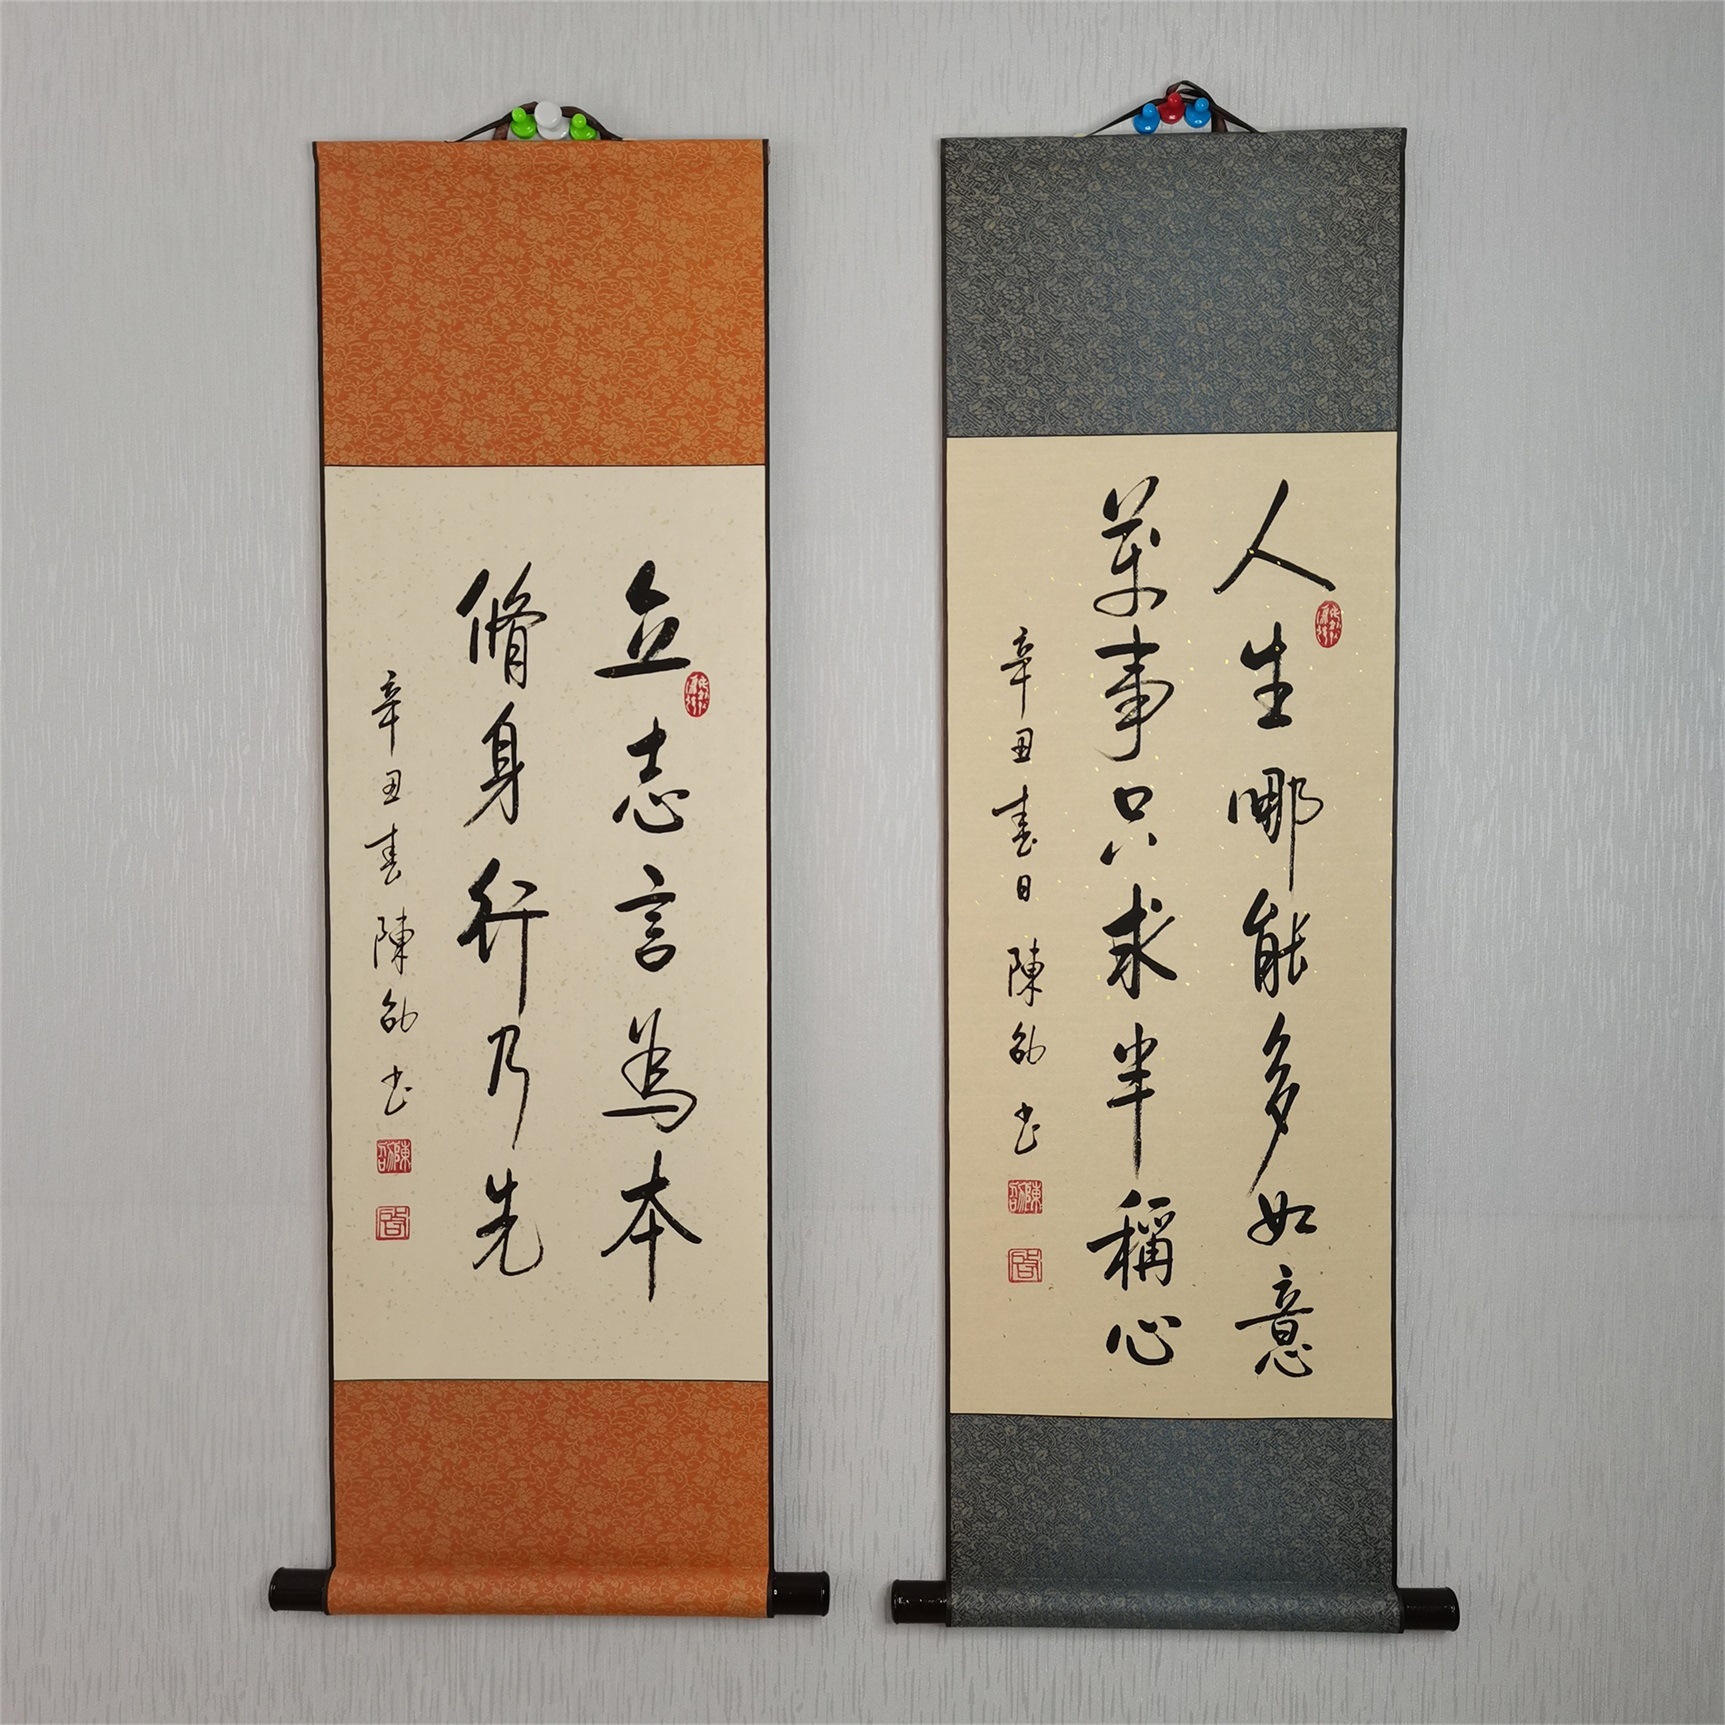 立志言為本
脩身行乃先
辛丑春陳劭书
陳劭
人生哪能多如意
萬事只求半稱心
辛丑春日陳劭书
陳劭